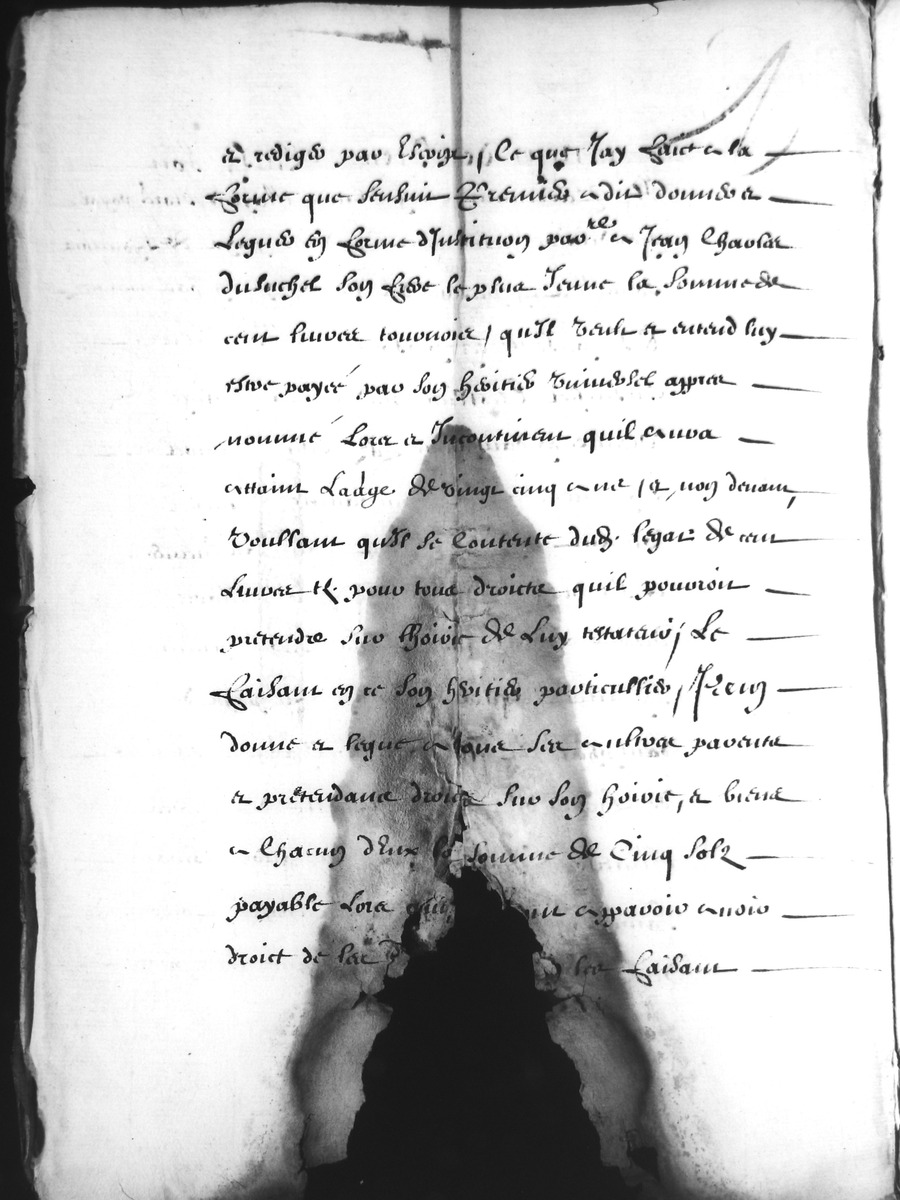 et rediger par escript, Ce que Jay faict a la
forme que sensuit Premier a dit donner et
leguer en forme dJnstitution par.re a Jean Charles
duluchel son frere le plus Jeune la somme de
cent livres tournois, quJl veult et entend luy
estre payeé par son heritier vniversel appres
nommé Lors et Jncontinent quil aura
attaint Laage de vingt cinq ans, et non devant,
voullant quJl se Contente dud. legat de cent
Livres tz. pour tous droictz quil pourroit
pretendre sur lhoirie de Luy testateur, Le
faisant en ce son heritier particullier, Jtem
donne et legue a tous ses aultres parents
et pretendans droictz sur son hoirie, et biens
a Chacun dEux la somme de Cinq solz
payable Lors apparoir avoir
droict de les les faisant